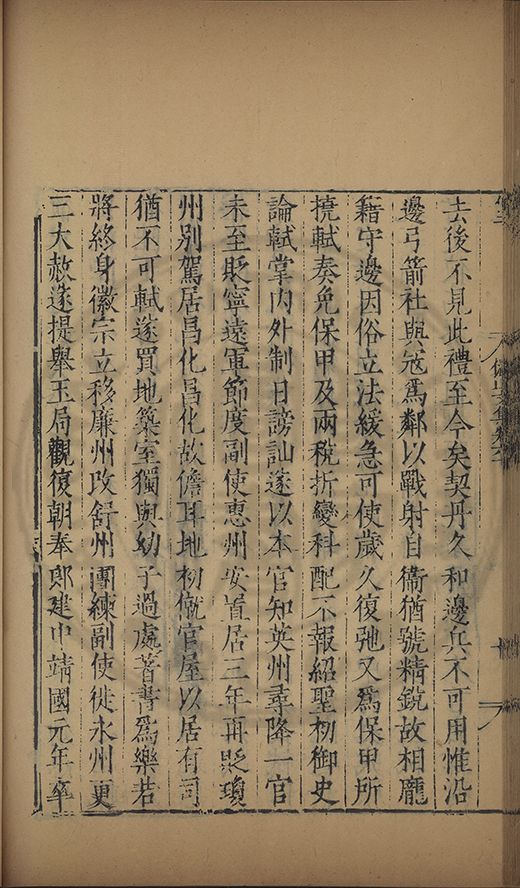 去後不見此禮至今矣契丹久和邊兵不可用惟沿
邊弓箭社與冦爲鄰以戰射自衞猶號精銳故相龐
籍守邊因俗立法緩急可使歲久復弛又爲保甲所
撓軾奏免保甲及兩稅折變科配不報紹聖初御史
論軾掌內外制日謗訕遂以本官知英州尋降一官
未至貶寧遠軍節度副使惠州安置居三年再貶瓊
州别駕居昌化昌化故儋耳地初僦官屋以居有司
猶不可軾遂買地築室獨與幼子過處著書爲樂若
將終身徽宗立移廉州改舒州團練副使徙永州更
三大赦遂提舉玉局觀復朝奉郎建中靖國元年卒